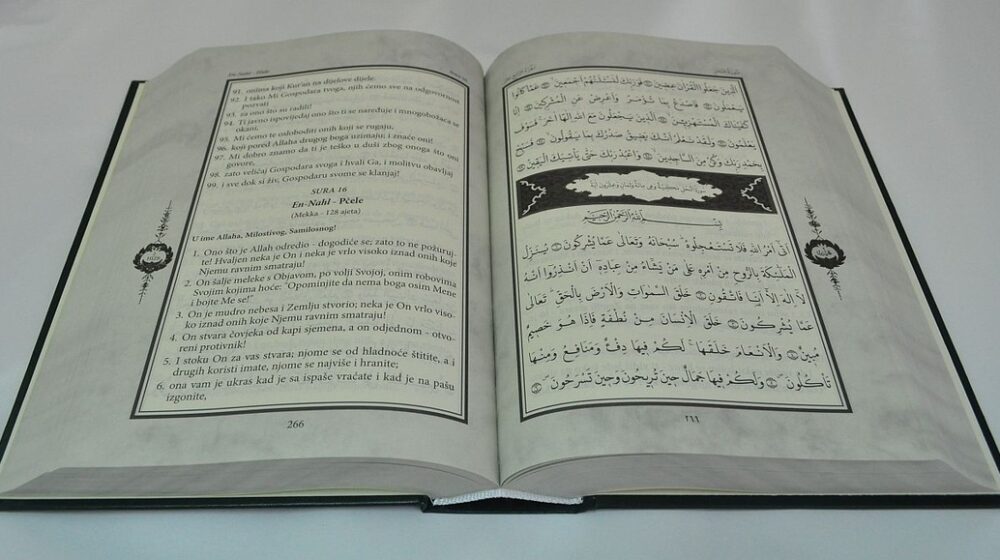 En-Nahl - Pčele
91. onima koji Kur'an na dijelove dijele.
92. I tako Mi Gospodara tvoga, njih ćemo sve na odgovornost
pozvati
93. za ono što su radili!
94. Ti javno ispovijedaj ono što ti se naređuje i mnogobožaca se
okani,
95. Mi ćemo te osloboditi onih koji se rugaju,
96. koji pored Allaha drugog boga uzimaju; i znaće oni!
97. Mi dobro znamo da ti je teško u duši zbog onoga što oni
govore,
98. zato veličaj Gospodara svoga i hvali Ga, i molitvu obavljaj
99. i sve dok si živ, Gospodaru svome se klanjaj!
SURA 16
En-Nahl - Pčele
(Mekka - 128 ajeta)
U ime Allaha, Milostivog, Samilosnog!
1. Ono što je Allah odredio - dogodiće se; zato to ne požuruj-
te! Hvaljen neka je On i neka je vrlo visoko iznad onih koje
Njemu ravnim smatraju!
2. On šalje meleke s Objavom, po volji Svojoj, onim robovima
Svojim kojima hoće: "Opominjite da nema boga osim Mene
i bojte Me se!"
3. On je mudro nebesa i Zemlju stvorio; neka je On vrlo viso-
ko iznad onih koje Njemu ravnim smatraju!
4. On stvara čovjeka od kapi sjemena, a on odjednom - otvo-
reni protivnik!
5. I stoku On za vas stvara; njome se od hladnoće štitite, a i
drugih koristi imate, njome se najviše i hranite;
6. ona vam je ukras kad je sa ispaše vraćate i kad je na pašu
izgonite,
266
الَّذِينَ جَعَلُوا الْقُرْآنَ عِضِينَ ۝ فَوَرَبِّكَ لَنَسْئَلَنَّهُمْ أَجْمَعِينَ ۝ عَمَّا كَانُوا
يَعْمَلُونَ ۝ فَاصْدَعْ بِمَا تُؤْمَرُ وَأَعْرِضْ عَنِ الْمُشْرِكِينَ ۝ إِنَّا
كَفَيْنَاكَ الْمُسْتَهْزِئِينَ ۝ الَّذِينَ يَجْعَلُونَ مَعَ اللهِ إِلٰهًا آخَرَ فَسَوْفَ
يَعْلَمُونَ ۝ وَلَقَدْ نَعْلَمُ أَنَّكَ يَضِيقُ صَدْرُكَ بِمَا يَقُولُونَ ۝ فَسَبِّحْ
بِحَمْدِ رَبِّكَ وَكُنْ مِنَ السَّاجِدِينَ ۝ وَاعْبُدْ رَبَّكَ حَتَّى يَأْتِيَكَ الْيَقِينُ ۝
سورة النحل مكية وهي مائة وثمان وعشرون آية
بِسْمِ اللهِ الرَّحْمٰنِ الرَّحِيمِ
أَتَى أَمْرُ اللهِ فَلَا تَسْتَعْجِلُوهُ سُبْحَانَهُ وَتَعَالَى عَمَّا يُشْرِكُونَ ۝ يُنَزِّلُ
الْمَلٰئِكَةَ بِالرُّوحِ مِنْ أَمْرِهِ عَلَى مَنْ يَشَاءُ مِنْ عِبَادِهِ أَنْ أَنْذِرُوا أَنَّهُ
لَا إِلٰهَ إِلَّا أَنَا فَاتَّقُونِ ۝ خَلَقَ السَّمٰوَاتِ وَالْأَرْضَ بِالْحَقِّ تَعَالَى
عَمَّا يُشْرِكُونَ ۝ خَلَقَ الْإِنْسَانَ مِنْ نُطْفَةٍ فَإِذَا هُوَ خَصِيمٌ
مُبِينٌ ۝ وَالْأَنْعَامَ خَلَقَهَا لَكُمْ فِيهَا دِفْءٌ وَمَنَافِعُ وَمِنْهَا
تَأْكُلُونَ ۝ وَلَكُمْ فِيهَا جَمَالٌ حِينَ تُرِيحُونَ وَحِينَ تَسْرَحُونَ ۝
٢٦٦